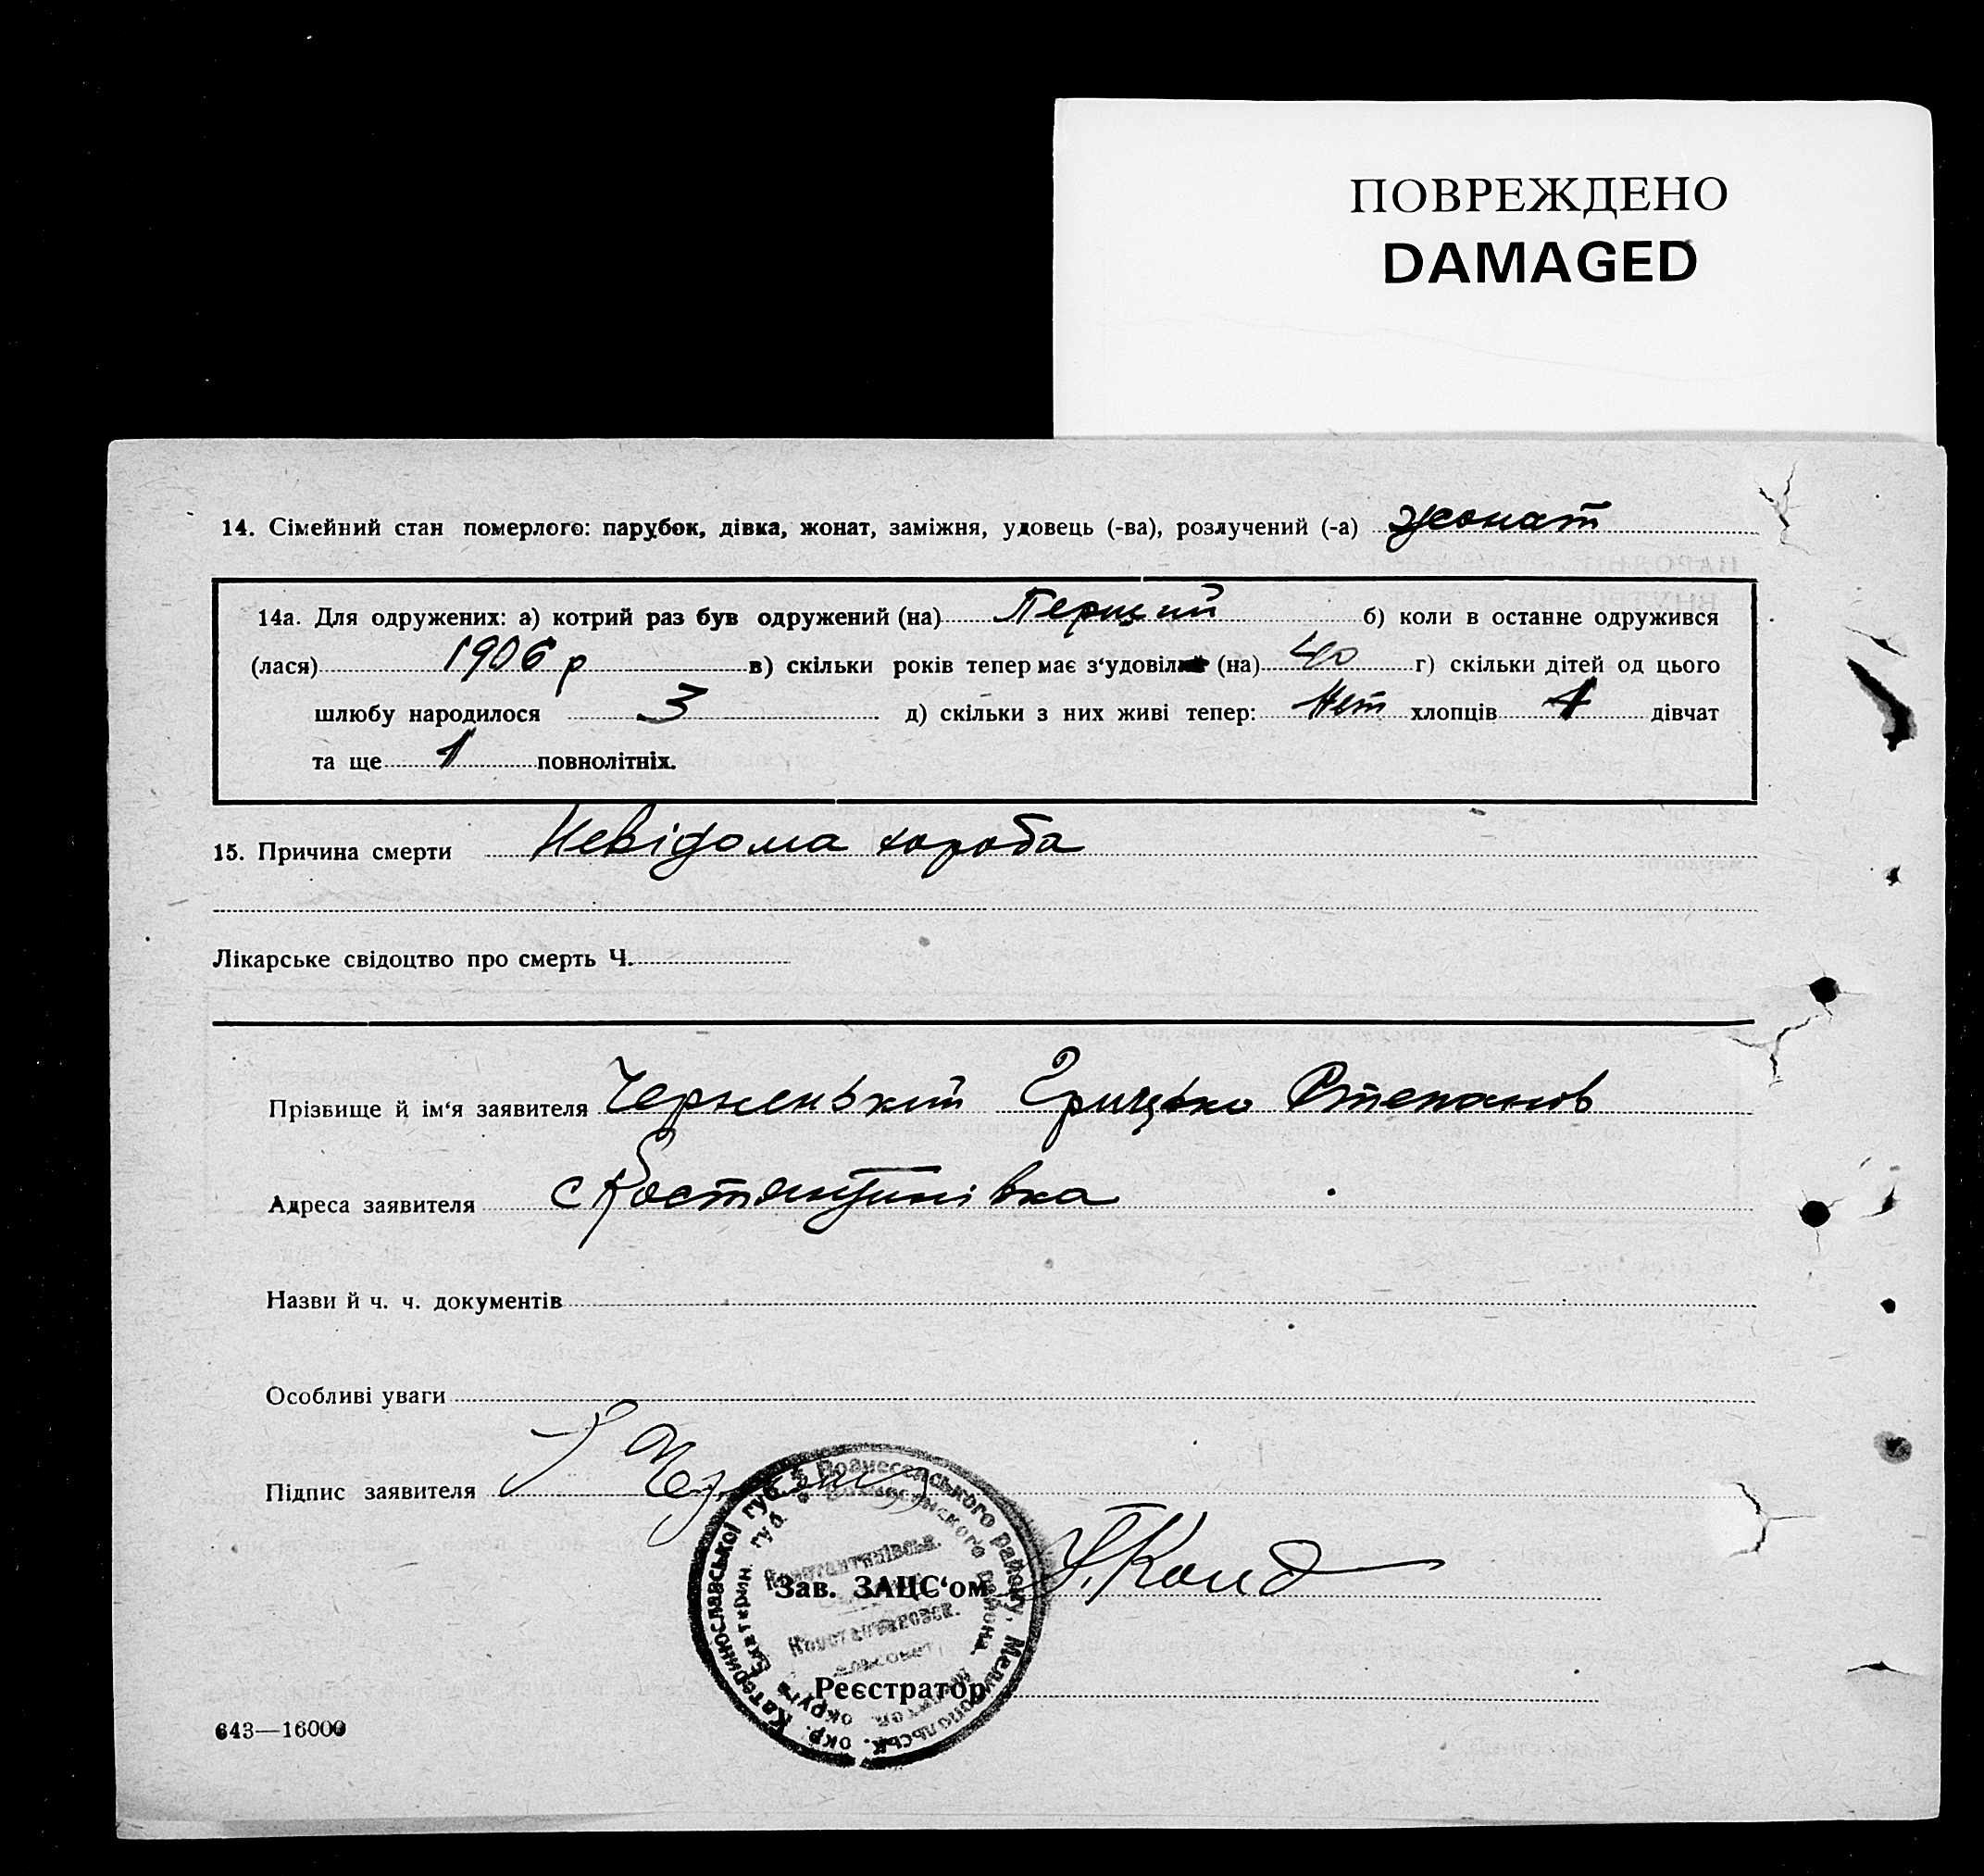 ПОВРЕЖДЕНО
DAMAGED
14. Сімейний стан померлого: парубок, дівка, жонат, заміжня, удовець (-ва), розлучений (-а) жонат
14а. Для одружених: а) котрий раз був одружений (на) Перший б) коли в останне одружився
(лася) 1906 р в) скільки років тепер має з'удовіл (на) 40 г) скільки дітей од цього
шлюбу народилося 3 д) скільки з них живі тепер: Нет хлопців 1 дівчат
та ще 1 повнолітніх.
15. Причина смерти Невідома хороба
Лікарське свідоцтво про смерть Ч.
Прізвище й ім'я заявителя Черненький Грицько Степанов
Адреса заявителя с Костянтинівка
Назви й ч. ч. документів
Особливі уваги
Підпис заявителя
Катеринославської губ. Вознесенського району, Мелитопольськ. окр.
Екатерин. губ. Вознесенского района, округа
Константинівськ.
Зав. ЗАЦС'ом
Константиновск.
Реєстратор
643—16000